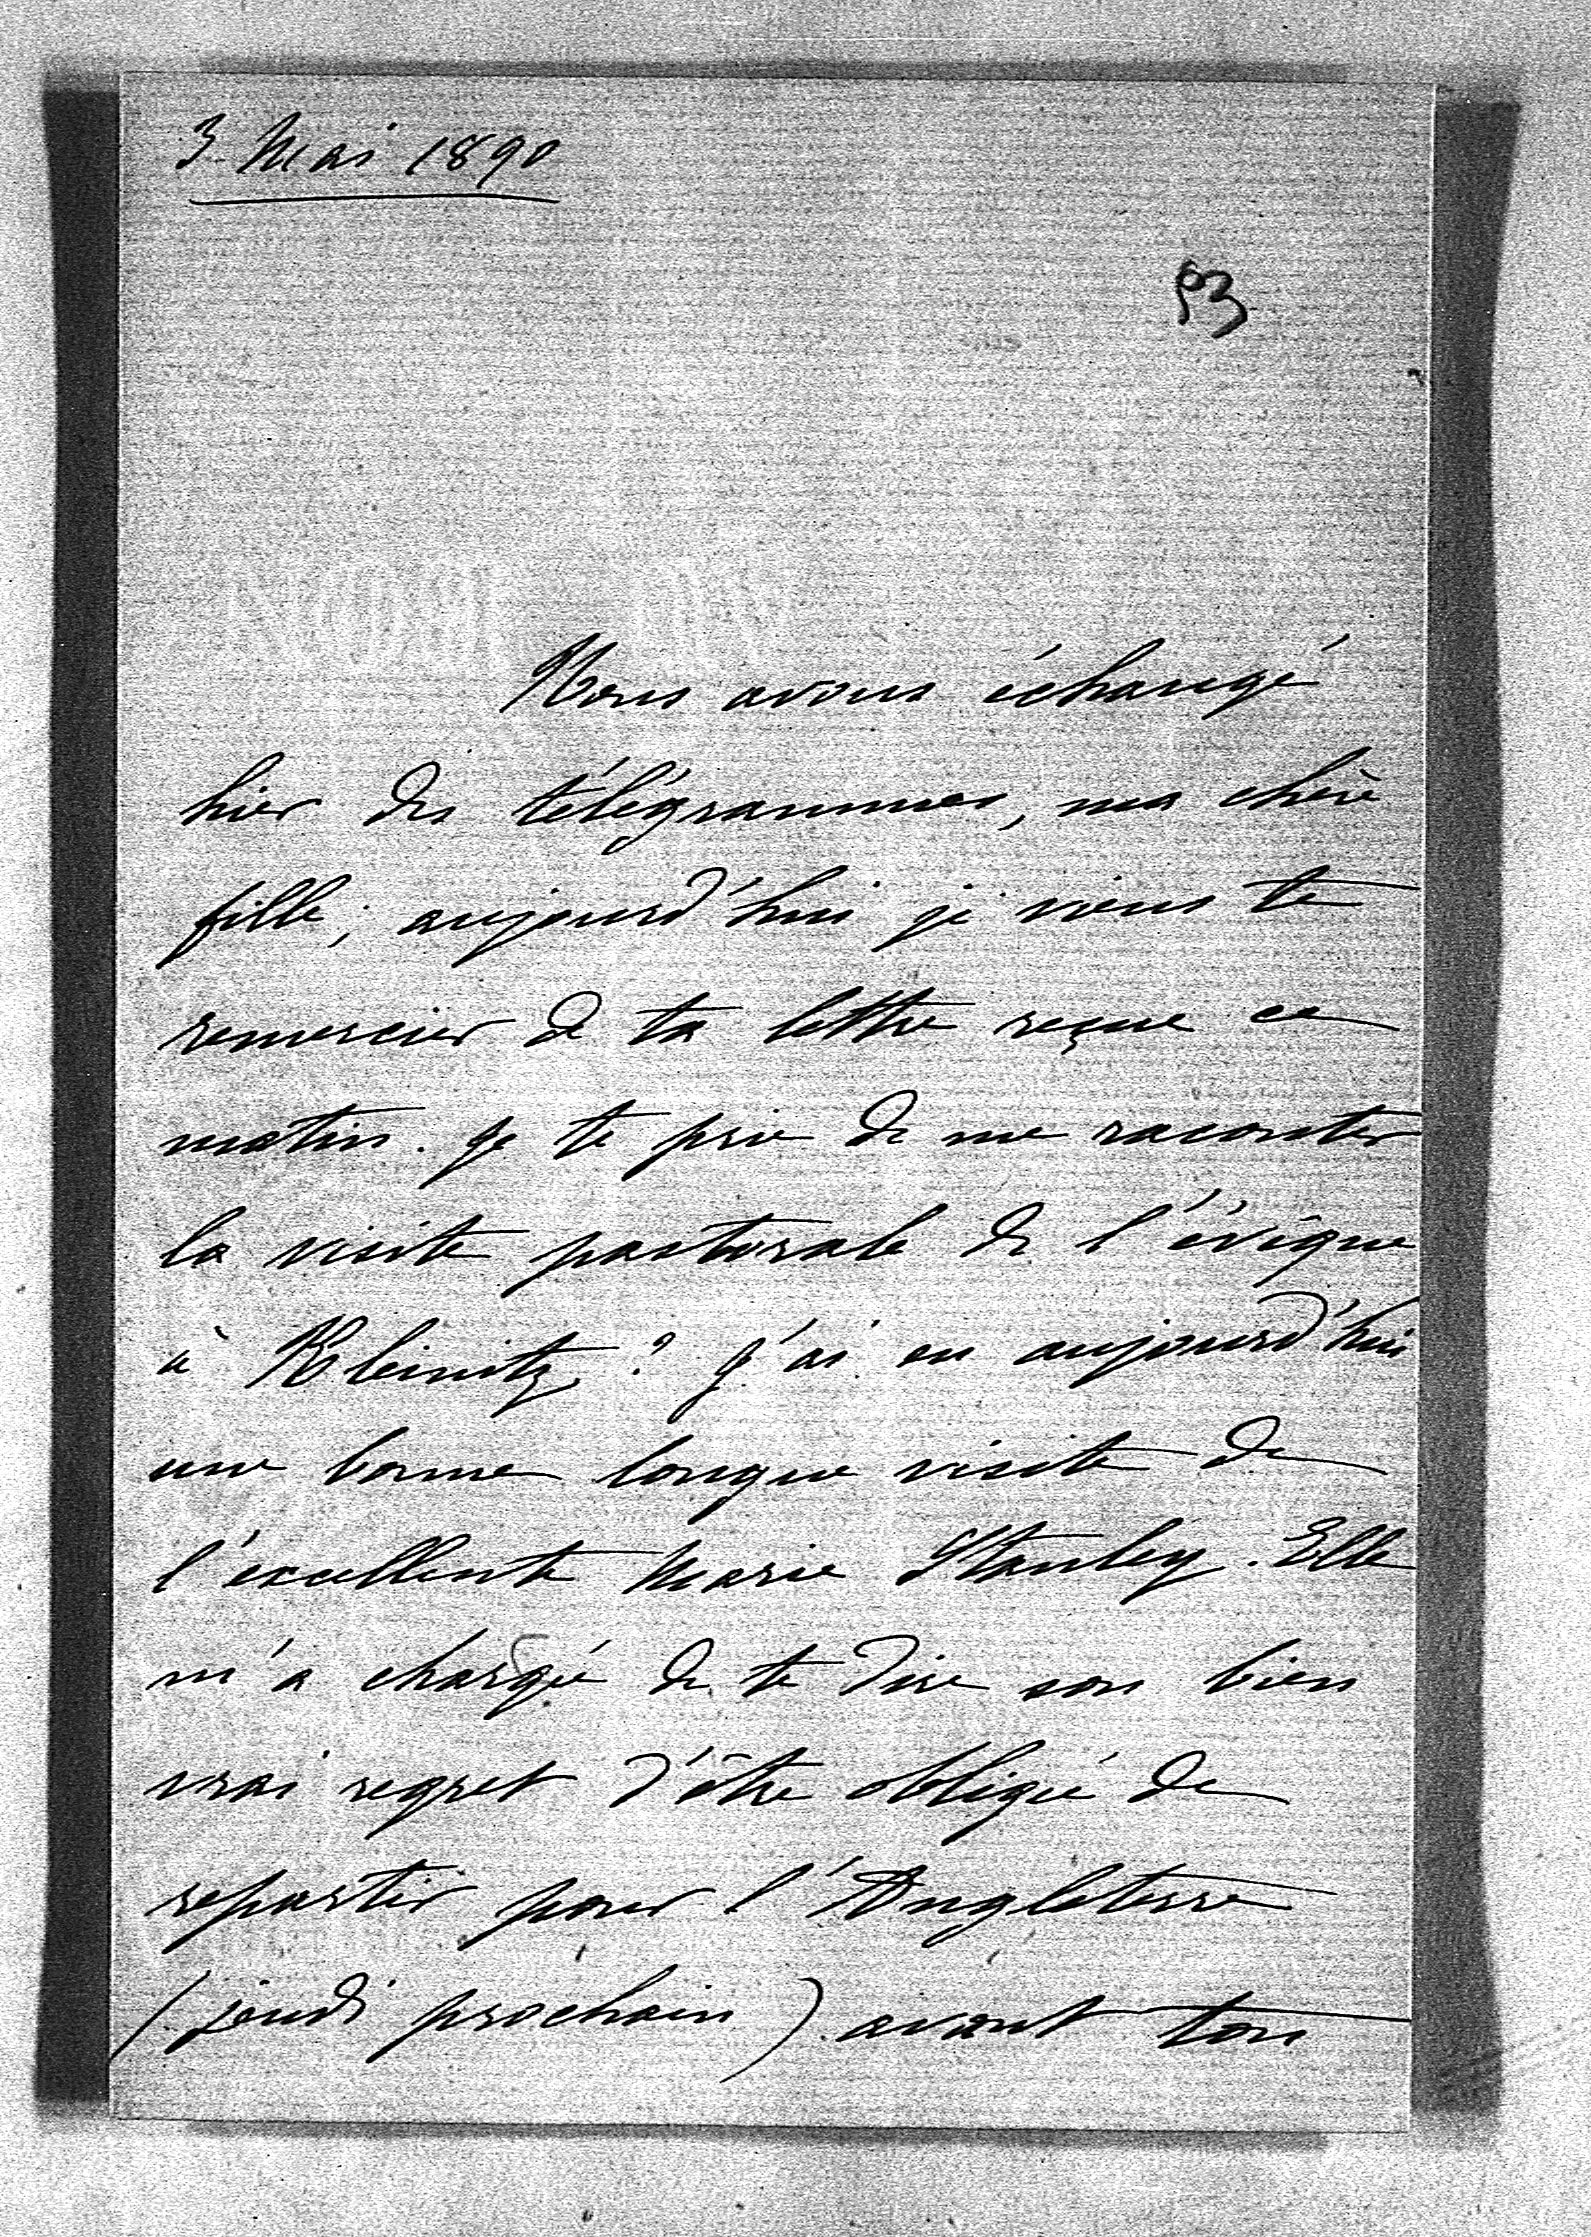 3. Mai 1890
93
Nous avons échangé
hier des télégrammes, ma chère
fille; aujourd'hui je viens te
remercier de ta lettre reçue ce
matin. Je te prie de me raconter
la visite pastorale de l'évêque
à Kleinitz? J'ai eu aujourd'hui
une bonne longue visite de
l'excellente Marie Stanley. Elle
m'a chargé de te dire son bien
vrai regret d'être obligée de
repartir pour l'Angleterre
(jeudi prochain) avant ton